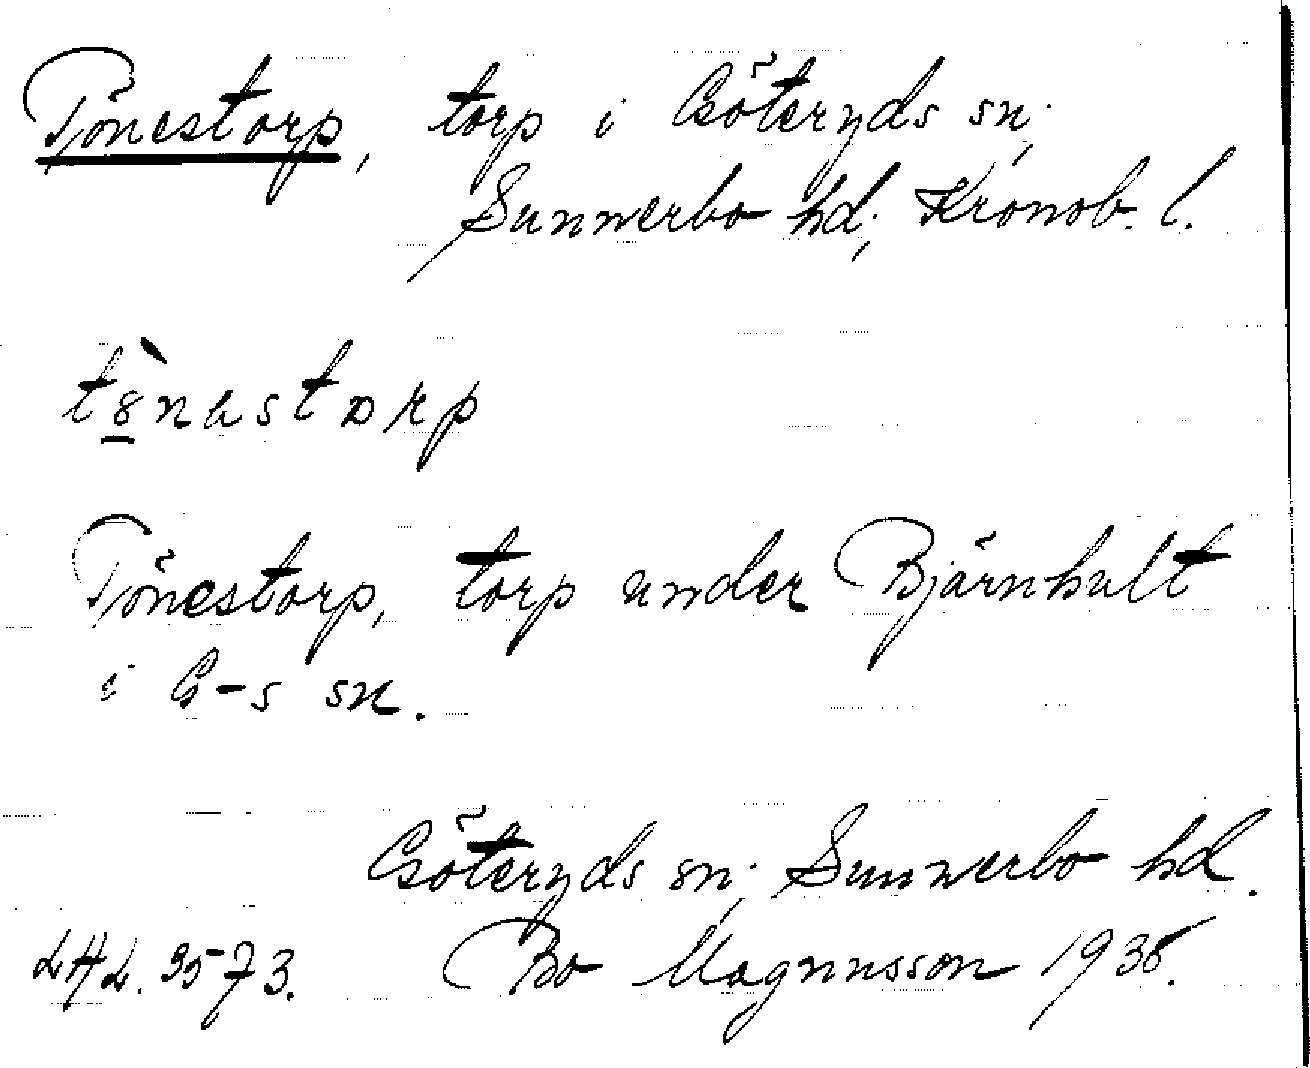 Tönestorp, torp i Göteryds sn;
Sunnerbo hd; Kronob. l.
Tönestorp, torp under Bjärnhult
i G-s sn.
Göteryds sn; Sunnerbo hd.
Bo Magnusson 1935.